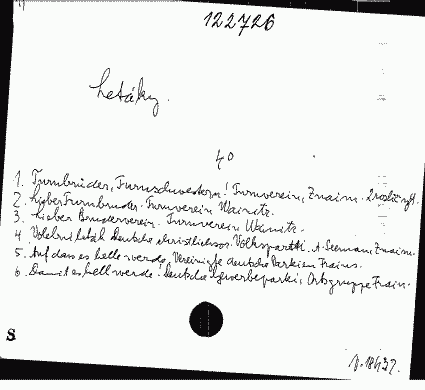 122726
Letáky.
40
1. Turnbrüder, Turnschwestern! Turnverein, Znaim.
2. Lieber Turnbruder. Turnverein Wainitz.
3. Lieber Bruderverein. Turnverein Wainitz.
4 Volební leták Deutsche christlichsoz. Volkspartei. A. Seemann, Znaim.
5. Auf dass es helle werde. Vereinigte deutsche Parteien Frains.
6. Damit es hell werde! Deutsche Gewerbepartei, Ortsgruppe Frain.
S